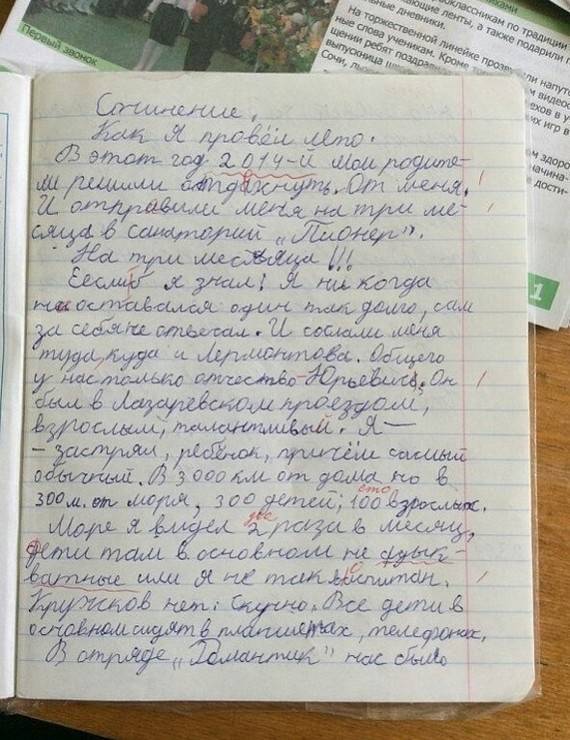 Первый звонок
воклассникам по традиции
ающие ленты, а также подарили п
льные дневники.
На торжественной линейке прозвучали напут
ные слова ученикам. Кроме
щении ребят поздрави
выпускница
Сочи,
м здоро
дости-
1
Сочинение.
Как Я провёл лето.
В этот год 2014-й мои родите-
ли решили отдахнуть. От меня.
И отправили меня на три ме-
сяца в санаторий „Пионер".
На три месяца!!!
Еслиб я знал! Я ни когда
не оставался один так долго, сам
за себя не отвечал. И сослали меня
туда, куда и Лермонтова. Общего
у нас только отчество-Юрьевич. Он
был в Лазаревском проездом,
взрослым, талантливый. Я —
- застрял, ребёнок, причём самый
обычный. В 3000 км от дома но в
300 м. от моря, 300 детей, 100 взрослых.
сто
Море я видел 2 раза в месяц,
два
дети там в основном не адык-
ватные или я не так воспитан.
Кружков нет. Скучно. Все дети в
основном сидят в планшетах, телефонах.
В отряде „Романтик" нас было